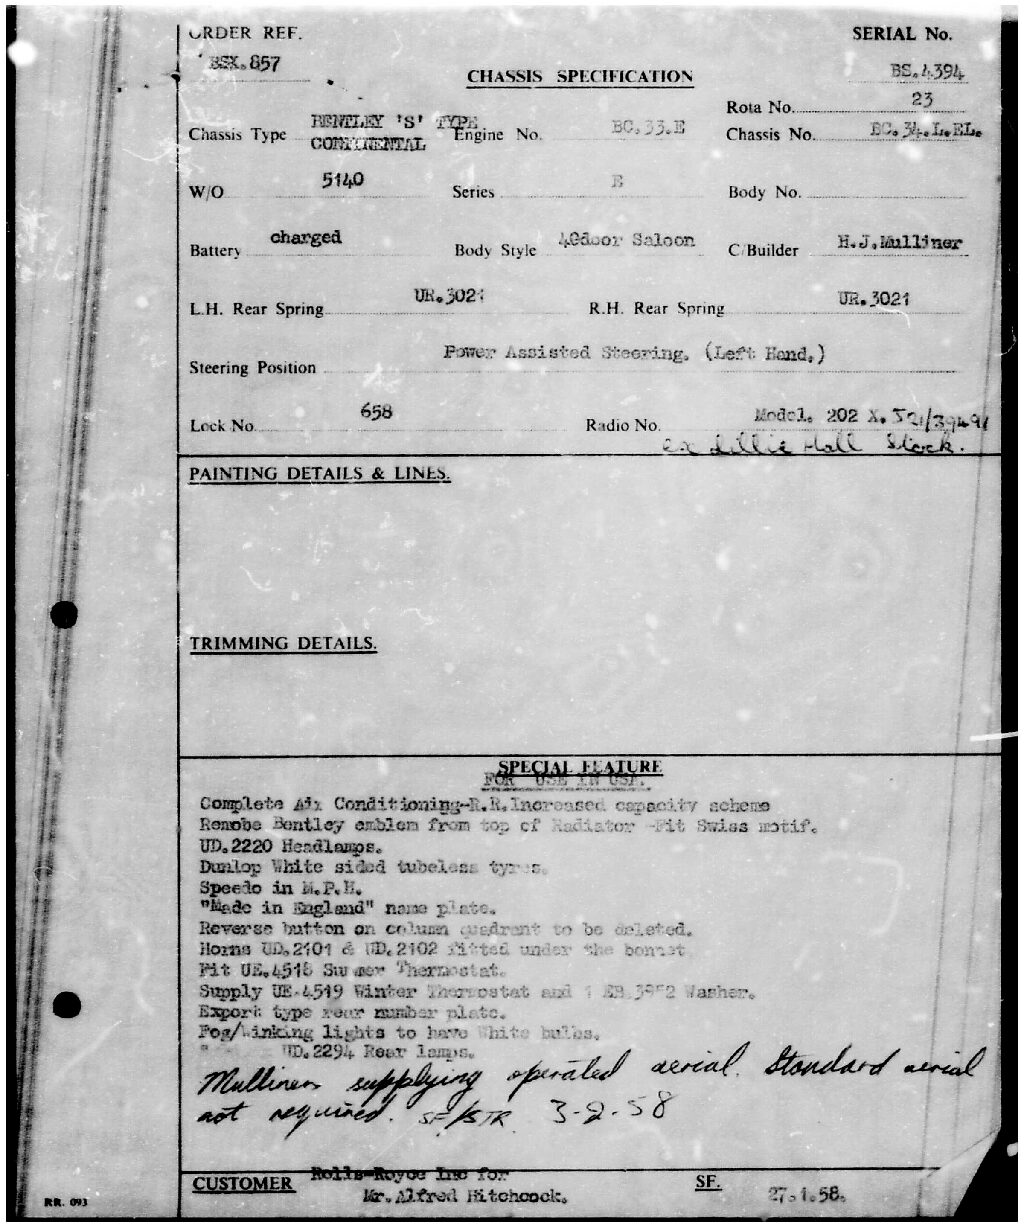 ORDER REF. SERIAL No.
BSX.857 BS.4394
CHASSIS SPECIFICATION
Rota No. 23
Chassis Type BENTLEY 'S' TYPE CONTINENTAL Engine No. BC.33.E Chassis No. BC.34.L.EL.
W/O 5140 Series E Body No.
Battery charged Body Style 4 door Saloon C/Builder H.J.Mulliner
L.H. Rear Spring UR.3021 R.H. Rear Spring UR.3021
Steering Position Power Assisted Steering. (Left Hand.)
Lock No. 658 Radio No. Model. 202 X.
ex Lillie Hall Stock.
PAINTING DETAILS & LINES.
TRIMMING DETAILS.
SPECIAL FEATURE
FOR USE IN USA.
Complete Air Conditioning-R.R.Increased capacity scheme
Remobe Bentley emblem from top of Radiator -Fit Swiss motif.
UD.2220 Headlamps.
Dunlop White sided tubeless tyres.
Speedo in M.P.H.
"Made in England" name plate.
Reverse button on column quadrant to be deleted.
Horns UD.2101 & UD.2102 fitted under the bonnet
Fit UE.4518 Summer Thermostat.
Supply UE.4519 Winter Thermostat and 1 EB.3952 Washer.
Export type rear number plate.
Fog/Winking lights to have White bulbs.
UD.2294 Rear lamps.
Mulliners supplying operated aerial. Standard aerial
not required. SF/STR 3-2-58
CUSTOMER Rolls-Royce Inc for SF.
Mr. Alfred Hitchcock. 27.1.58.
RR. 093